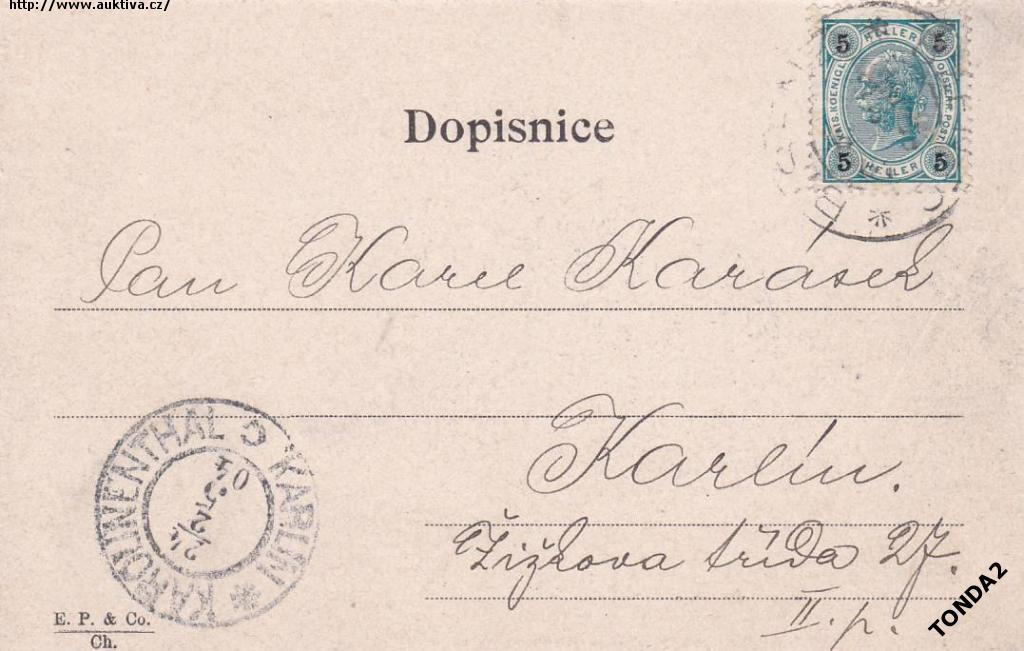 http://www.auktiva.cz/
5 HELLER 5
KAIS. KOENIGL. OESTERR. POST.
5 HELLER 5
Dopisnice
Pan Karel Karásek
Karlín.
Žižkova třída 27.
II. p.
KAROLINENTHAL KARLIN
04
E. P. & Co.
Ch.
TONDA2